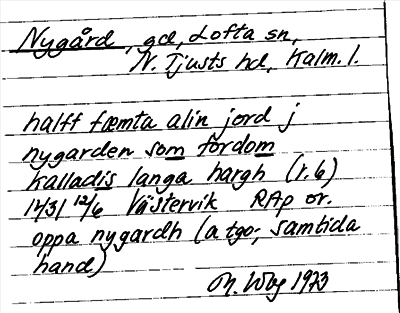 Nygård, gd, Lofta sn,
N. Tjusts hd, Kalm. l.
halff fæmta alin jord j
nygarden som fordom
kalladis langa hargh (r. 6)
1431 12/6 Västervik RAp or.
oppa nygardh (a tgo, samtida
hand)
M. Wbg 1973